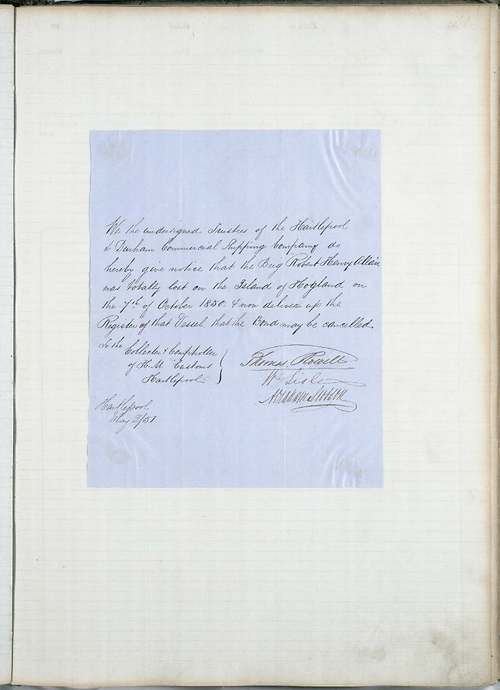 We the undersigned Trustees of the Hartlepool
& Durham Commercial Shipping Company do
hereby give notice that the Brig Robert Henry Allan
was totally lost on the Island of Hogland on
the 7th of October 1850 & now deliver up the
Register of that Vessel that the Bond may be cancelled.
To the Collector & Comptroller
of H.M. Customs
Hartlepool
Thomas Rowell
Wm Lisle
Abraham
Hartlepool
May 2/51